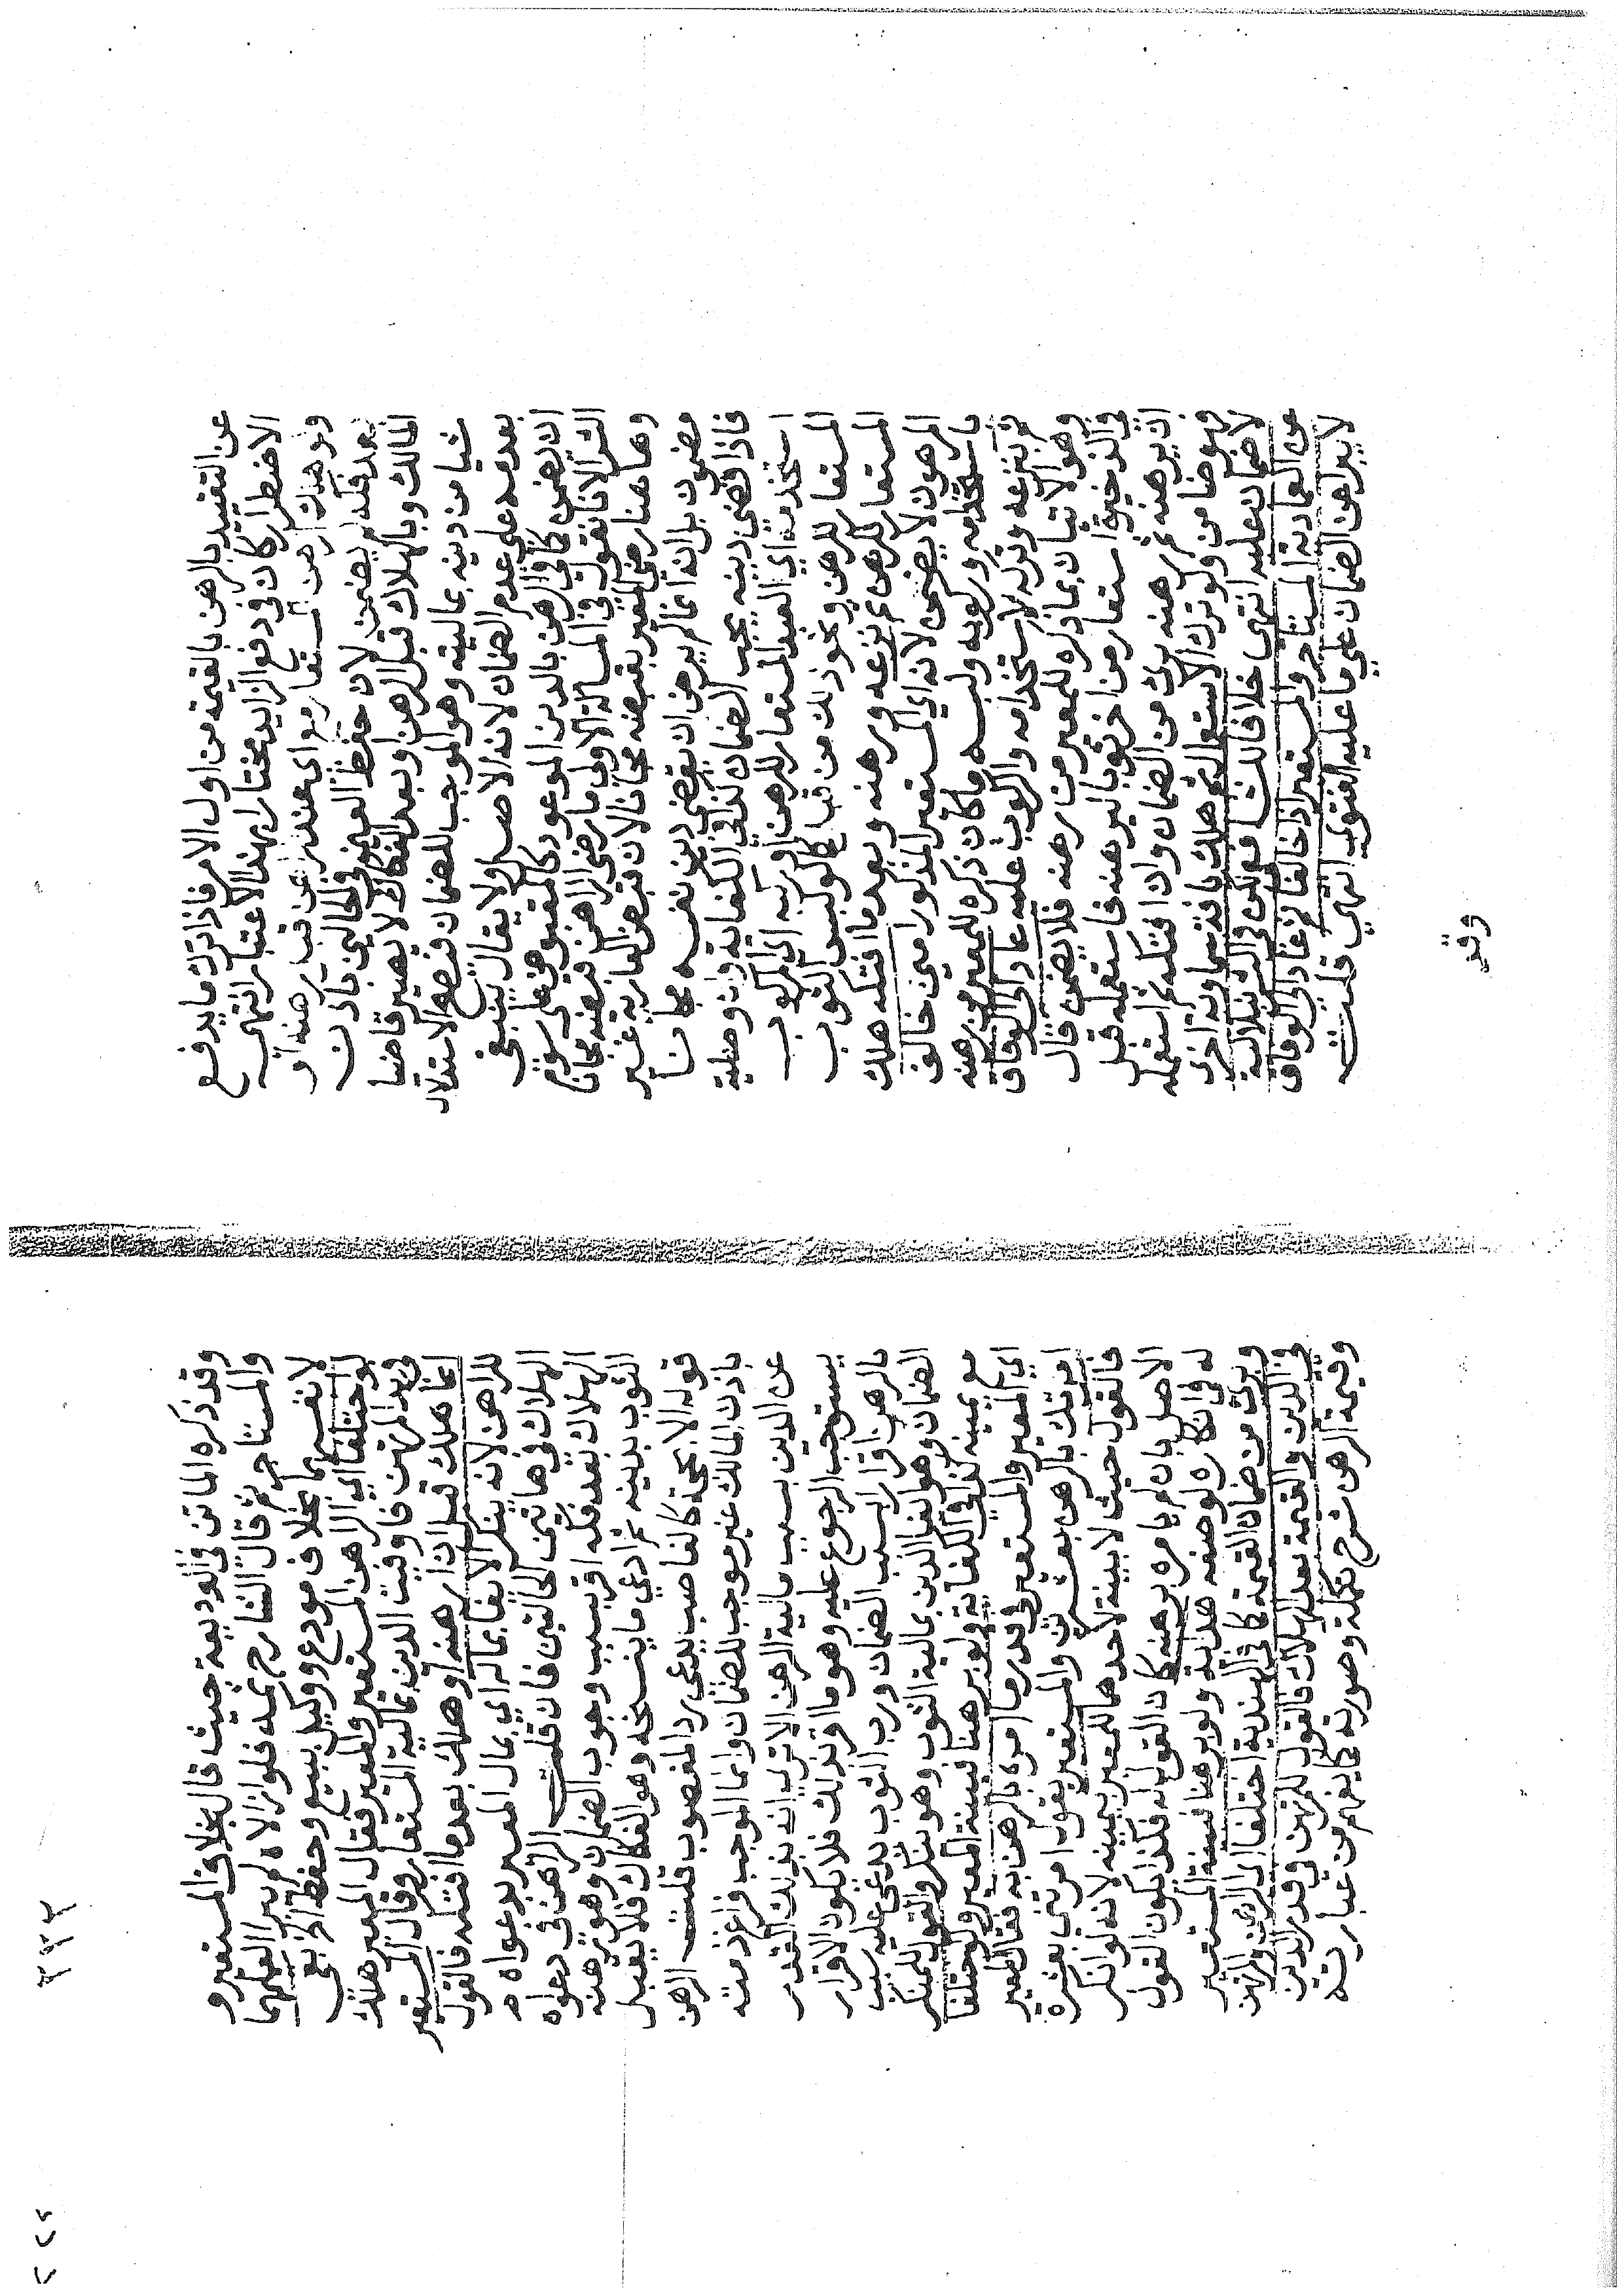 عن التقييد بالرهن بالقيمة من اول الامر فاذا ترك ما يدفع
الاضطرار كان في دفع الزايد مختارا بهذا الاعتبار انتهى
ولو هلك الرهن المستعار مع اي عند راهن قبل رهنه او
بعد فكه لم يضمن لان حفظ العين في الحالين باذن
المالك وبالهلاك قبل الرهن او بعد الفكاك لا يصير قاضيا
شيا من دينه بماليته وهو الموجب للضمان فتصح الاستدلال
بعدمه على عدم الضمان لانه الاصل ولا يقال ينبغي
ان يضمن كما في الرهن بالدين الموعود كالمقبوض على سوم
الشرا لانا نقول في المسالة الاولى ما رضي الراهن بقبضه مجانا
وهاهنا رضي المعير بقبضه مجانا لان قبض العارية غير
مضمون بل انه انما لم يرض ان يقضي دين نفسه مجانا
فاذا قضى دينه يجب الضمان كذا في الكفاية وان وصلية
استخدمه اي العبد المستعار للرهن او ركبه اي المركوب
المستعار للرهن ونحو ذلك من قبل كلو لبس الثوب
المستعار للرهن ثم نزعه ورهنه وبعد ما افتكه هلك
المرهون لا يضمن لانه اي المستعير المذكور امين خالف
باستخدامه وركوبه ولبسه وما كان ذكره للمعير من رهنه
ثم بنزعه وتركه لاستخدامه والركوب عليه عاد الى الوفاق
وهو الاتيان بما ذكره للمعير من رهنه فلا يضمن قال
في الذخيرة استعار من اخر ثوبا ليرهنه فاستعمله قبل
ان يرهنه ثم رهنه برئ من الضمان وان افتكه ثم استعمله
فهو ضامن ولو ترك الاستعمال ثم هلك بافة سماوية اخرى
لا ضمان عليه انتهى خلافا للشافعي لكن في الشرنبلالية
عن العمادية المستاجر والمستعير اذا خالفا ثم عادا الى الوفاق
لا يبرا عن الضمان على ما عليه الفتوى انتهى قلت
وقد
وقد ذكره الماتن في الوديعة حيث قال بخلاف المستعير و
والمستاجر ثم قال الشارح ثمه فلو ازالاه لم يبرا لعملهما
لانفسهما بخلاف مودع ووكيل بيع وحفظ الخ يعني
لو اختلفا اي الراهن المستعير والمعير فقال المعير هلك
في يد المرتهن فاوفيت الدين بمالية المستعار وقال المستعير
انما هلك قبل ان ارهنه او هلك بعد ما افتكه فالقول
للراهن لانه ينكر الايفا بماله اي بمال المعير بدعواه
الهلاك في هاتين الحالتين فان قلت الراهن في دعواه
الهلاك بعد فكه اقر بسبب وجوب الضمان وهو رهنه
الثوب بدينه ثم ادعى ما ينسخه وهو الفكاك فلا يقبل
قوله الا بحجة كالغاصب يدعي رد المغصوب قلت الرهن
باذن المالك غير موجب للضمان وانما الموجب فراغ ذمته
عن الدين بسبب مالية الرهن الا ترى انه بذلك القدر
يستوجب الرجوع عليه وهو ما اقر بذلك فلا يكون الاقرار
بالرهن اقرارا بسبب الضمان ورب الثوب يدعي عليه سبب
الضمان وهو ايفا الدين بمالية الثوب وهو ينكر والقول للمنكر
مع يمينه كذا في الكفاية ولو برهنا فبينة المعير ولو اختلفا
اي المعير والمستعير في قدر ما امره بالرهن به فقال المعير
امرتك بالرهن بعشرين والمستعير يقول امرتني بعشرة
فالقول حيث لا بينة لاحدهما للمعير بيمينه لانه لو انكر
الاصل بان لم يامره برهنه كان القول له فكذا يكون القول
له في انكاره لوصفه هداية ولو برهنا فبينة المستعير
وبرئ من ضمان القيمة كما في الهندية اختلفا اي الراهن والمرتهن
في الدين والقيمة بعد الهلاك فالقول للمرتهن في قدر الدين
وقيمة الرهن شرح تكملة وصورته كما يفهم من عبارته